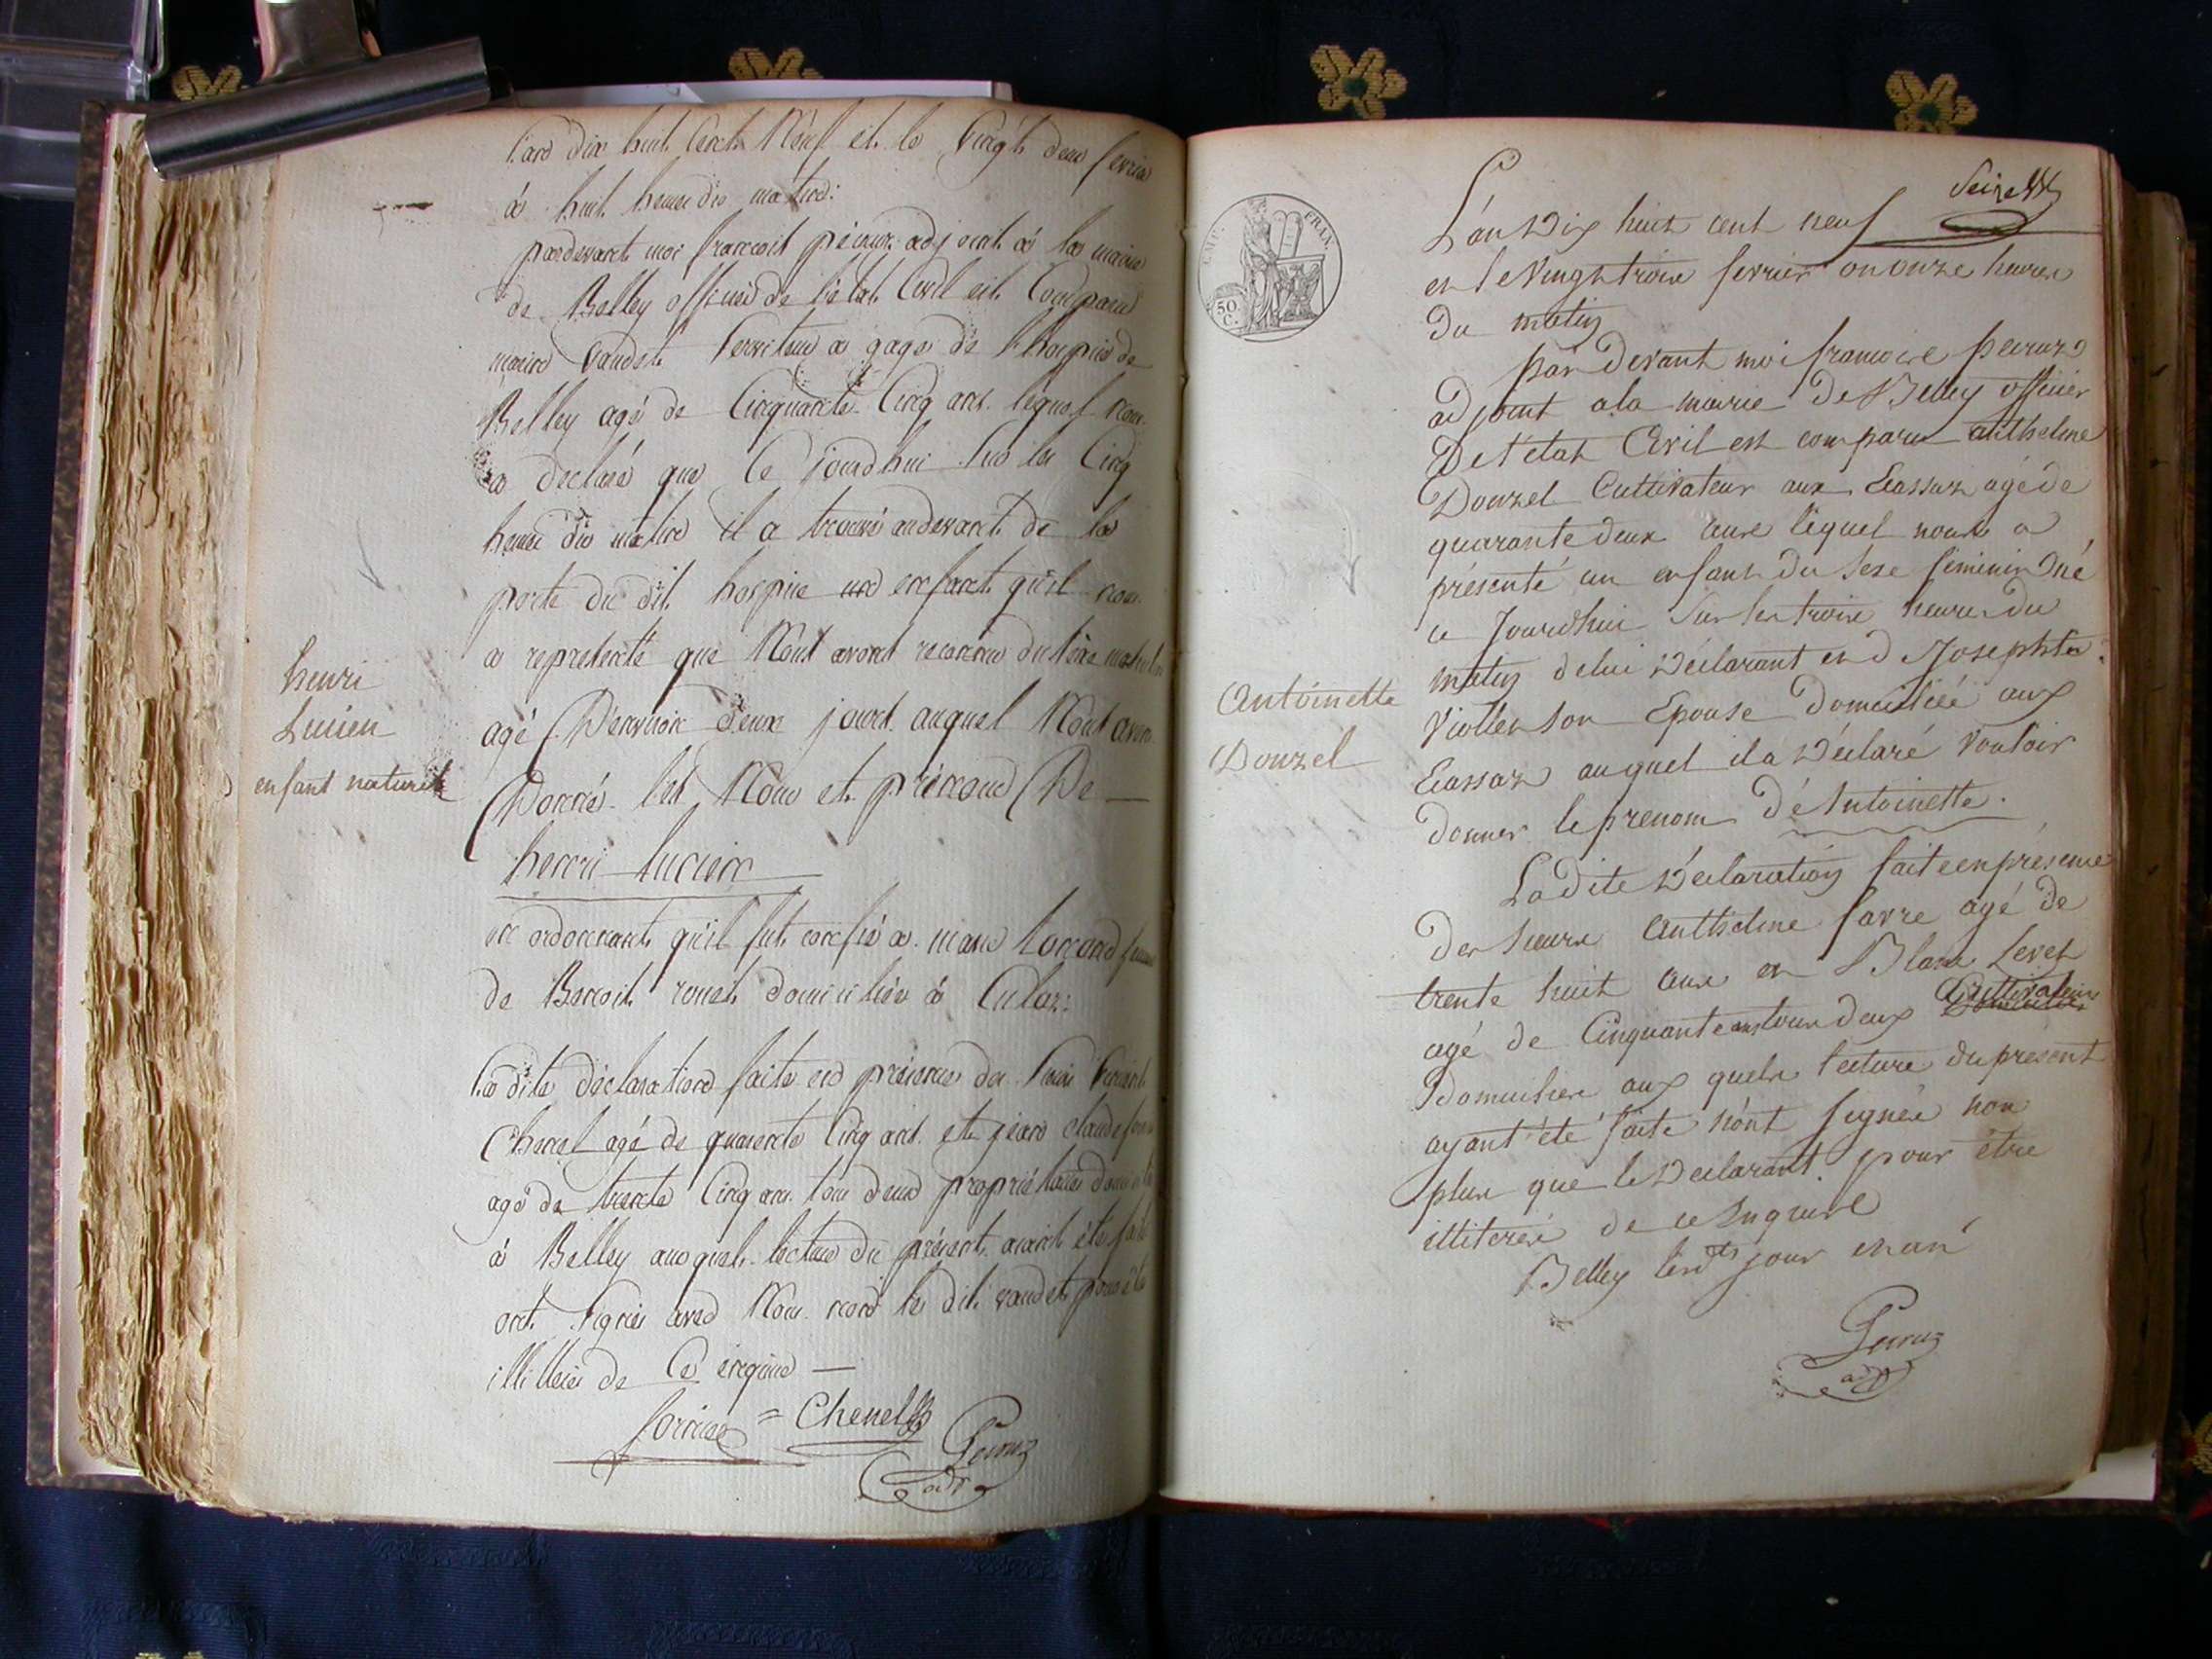 L'an dix huit Cent Neuf et le Vingt deux fevrier
à huit heures du matin:
pardevant moi francoit péruz adjoint à la mairie
de Belley officier de l'état Civil est Comparu
vaudet Serviteur à gage de l'hospice de
Belley agé de Cinquante Cinq ans. lequel nous
a declaré que Ce jourdhui Sur les Cinq
heures du matin il a trouvé audevant de la
porte du dit hospice un enfant qu'il nous
a representé que Nout avont reconnu du séxe masculin
henri
Lucien
enfant naturel
agé D'environ deux jourt auquel Nout avons
Donné les Nom et prénoms De
henri Lucien
en ordonnant qu'il fut confié à marie
de Benoit rouet domiciliée à Culoz:
La dite déclaration faite en présence des Sieurs Vincent
Chenel agé de quarente Cinq ans et jean claude
agé de trente Cinq ans tous deux propriétaires domiciliés
à Belley auxquels lecture du présent aiant été faite
ont Signés avec Nous non le dit vaudet pour être
illitteré de Ce enquis —
= Chenel
Peruz
adjt
EMP. FRAN.
50 C.
L'an Dix huit cent neuf
et le Vingt troix fevrier on onze heures
Du matin
par Devant moi francoise peruz
adjoint a la mairie De Belley officier
De l'état Civil est comparu anthelme
Douzel Cultivateur aux Ecassaz agé de
quarante deux ans lequel nous a
présenté un enfant du sexe féminin né
ce jourdhui Sur les troix heures du
matin de lui Déclarant et d Josephte
Antoinette
Douzel
Viollet son Epouse Domiciliée aux
Ecassaz auquel il a Déclaré Vouloir
donner le prenom d'é Antoinette.
La dite Déclaration faite en présence
Des sieurs Anthelme favre agé de
trente huit ans et Blaise Levet
Cultivateurs
agé de Cinquante ans tous deux
domiciliés aux quels lecture du present
ayant été faite n'ont signés non
plus que le Declarant. pour être
illiterés de ce Enquis
Belley les dts jour et an
Peruz
adjt